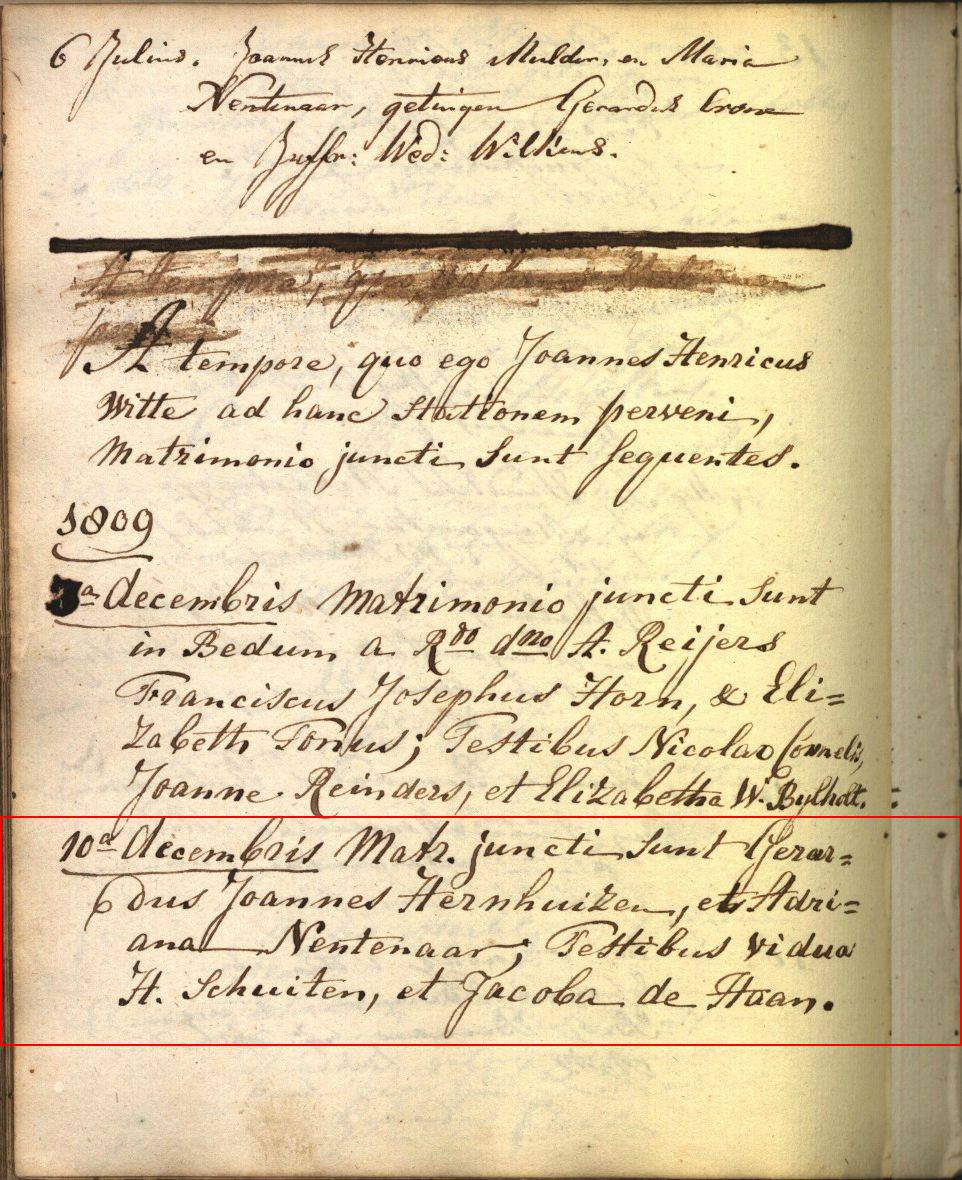 6 Julius. Joannes Henricus Mulder, en Maria
Nentenaar, getuigen Gerardus Crone
en Juffr: Wed: Wilkens.
A tempore, quo ego Joannes Henricus
Witte ad hanc Stationem perveni,
Matrimonio juncti Sunt sequentes.
1809
3a decembris Matrimonio juncti Sunt
in Bedum a Rdo dno A. Reijers
Franciscus Josephus Horn, & Eli=
zabeth Tonus; Testibus Nicolao Cornelis,
Joanne Reinders, et Elizabetha W. Bylholt.
10a decembris Matr. juncti Sunt Gerar=
dus Joannes Hernhuizen, et Adri=
ana Nentenaar; Testibus vidua
H. Schuiten, et Jacoba de Haan.